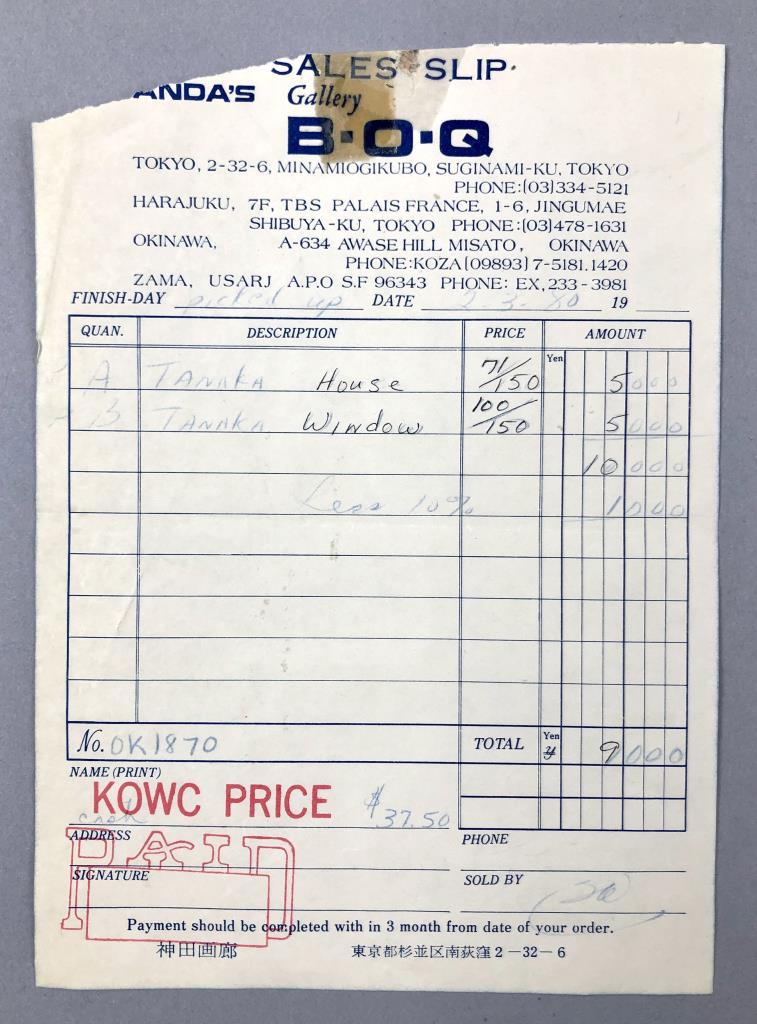 SALES SLIP
ANDA'S Gallery
B·O·Q
TOKYO, 2-32-6, MINAMIOGIKUBO, SUGINAMI-KU, TOKYO
PHONE:(03)334-5121
HARAJUKU, 7F, TBS PALAIS FRANCE, 1-6, JINGUMAE
SHIBUYA-KU, TOKYO PHONE:(03)478-1631
OKINAWA, A-634 AWASE HILL MISATO, OKINAWA
PHONE:KOZA(09893)7-5181.1420
ZAMA, USARJ A.P.O S.F 96343 PHONE: EX, 233-3981
FINISH-DAY picked up DATE 2-3-80 19
QUAN. DESCRIPTION PRICE AMOUNT
Yen
A TANAKA House 71/150 5000
B TANAKA Window 100/150 5000
10000
Less 10% 1000
No. OK1870 TOTAL Yen 9000
NAME (PRINT)
KOWC PRICE $37.50
cash
ADDRESS PHONE
PAID
SIGNATURE SOLD BY
Payment should be completed with in 3 month from date of your order.
神田画廊 東京都杉並区南荻窪2-32-6